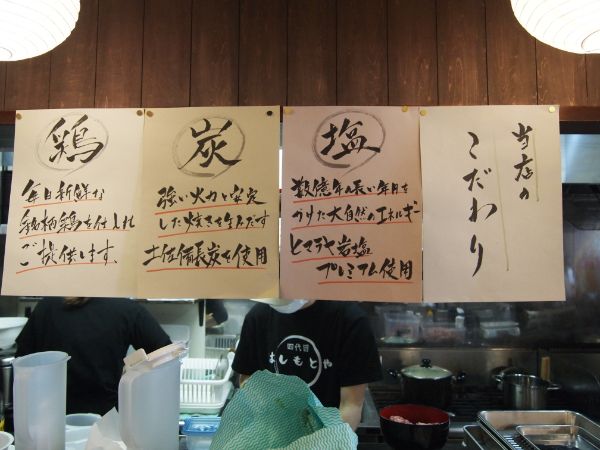 当店の
こだわり
塩
数億年の長い年月を
かけた大自然のエネルギー
ヒマラヤ岩塩
プレミアム使用
炭
強い火力と安定
した焼きを生みだす
土佐備長炭を使用
鶏
毎日新鮮な
銘柄鶏を仕入れ
ご提供します。
四代目
よしもとや